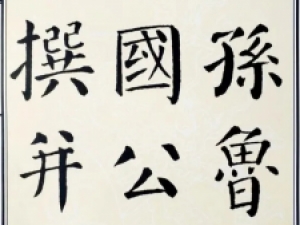 孫魯
國公
撰并